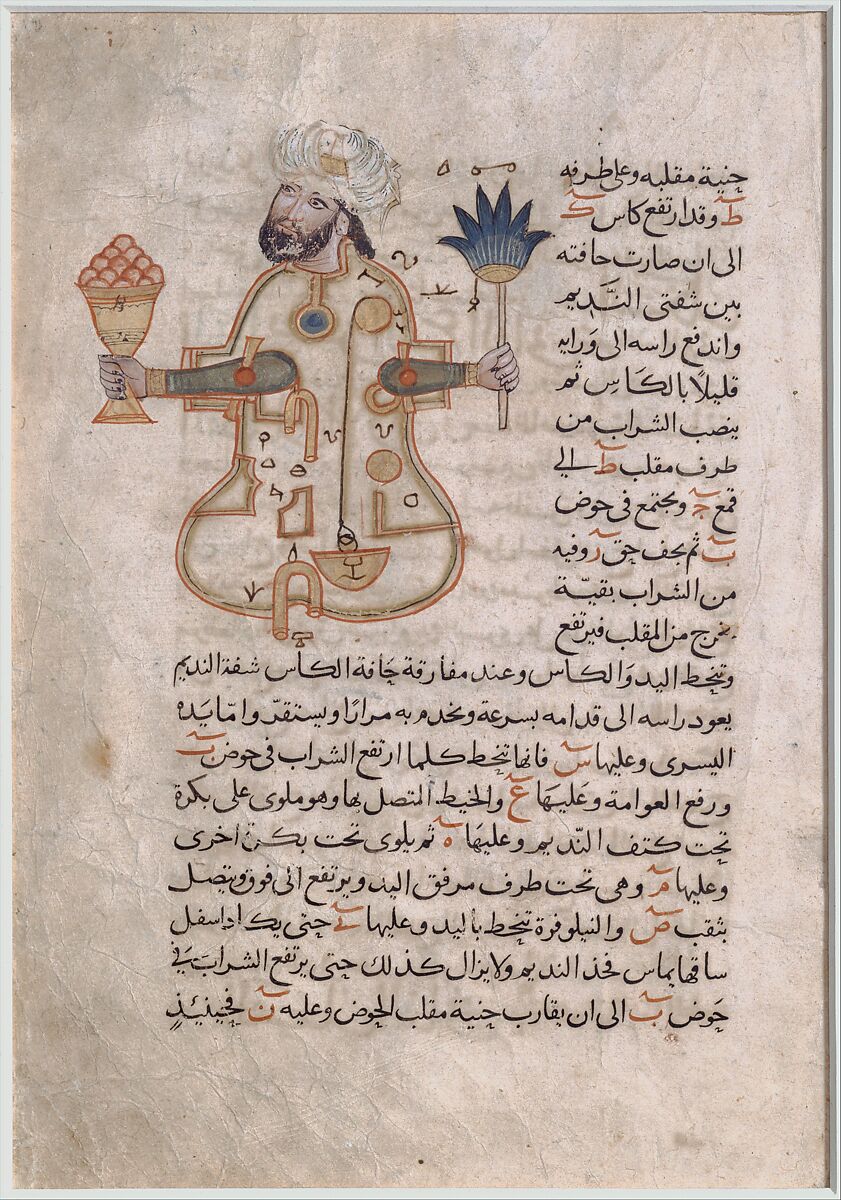 جنبة مقلبه وعلى طرفه
ط وقد ارتفع كاس ك
الى ان صارت حافته
بين شفتي النَّديم
واندفع راسه الى وَرايه
قليلًا بالكَاسِ ثم
ينصب الشراب من
طرف مقلب ط الى
قمع ج ويجتمع في حوض
ب ثم يجف حق ر وفيه
من الشراب بقيّة
تخرج من المقلب فيرتفع
وتنحط اليد وَالكاس وعند مفارقة حَافة الكأس شفة النديم
يعود راسه الى قدامه بسرعة ويخدم به مرارًا ويستقرّ وامّا يَده
اليسرى وعليها س فانها تنحط كلما ارتفع الشراب في حوض ب
ورفع العوامة وعَليهَا ع والخيط المتصل بها وهو ملوى على بكرة
تحت كتف النّديم وعليهَا ه ثم يلوى تحت بكرة اخرى
وعليها م وهى تحت طرف مرفق اليد ويرتفع الى فوق ويتصل
بثقب ص والنيلوفرة تنحط باليد وعليها ف حتى يكاد اسفل
ساقها يماس فخذ النديم ولا يزال كذلك حتى يرتفع الشراب في
حَوض ب الى ان يقارب جنبة مقلب الحوض وعليه ن فحينئذٍ